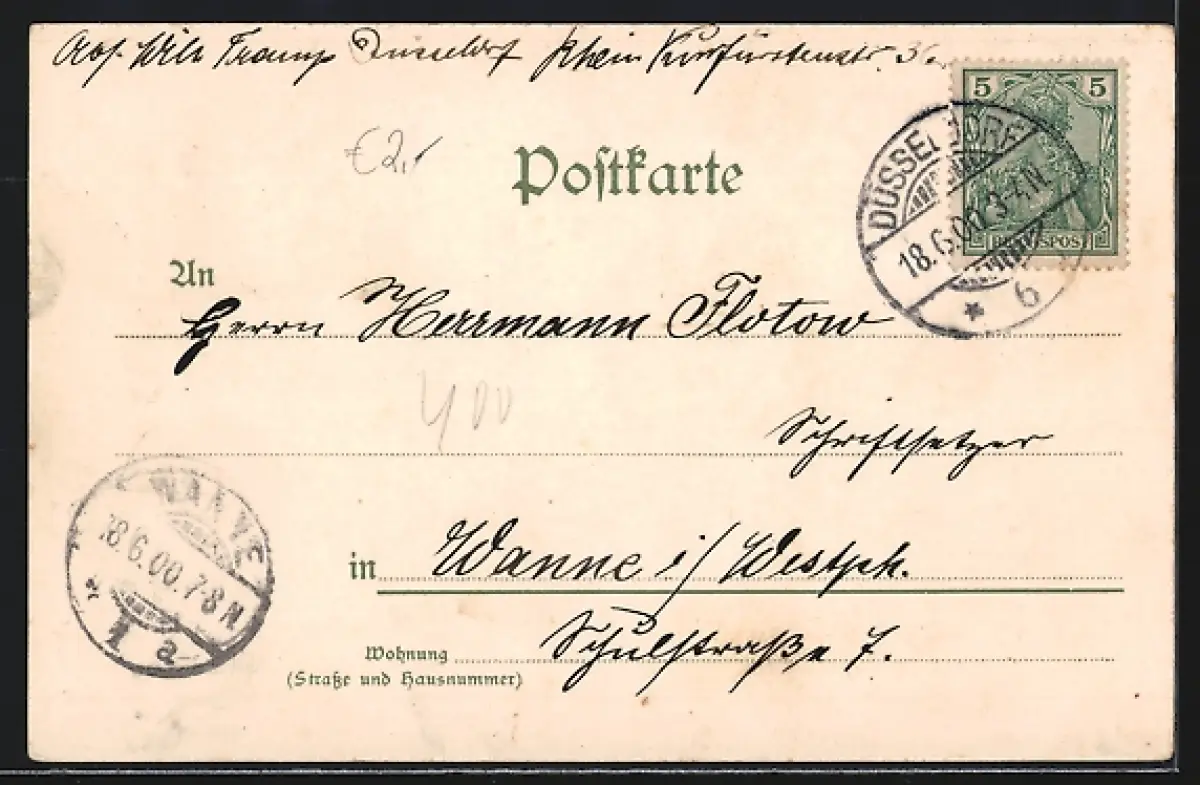 Abs. Wilh Tramp Düsseldorf Rhein Kurfürstenstr. 36
5 5
REICHSPOST
DÜSSELDORF
18.6.00.3-4.N.
* 6
€2,-
Postkarte
An
Herrn Herrmann Flotow
400
Schriftsetzer
WANNE
18.6.00.7-8N
1 a
in Wanne i/ Westph.
Wohnung Schulstraße 7.
(Straße und Hausnummer)